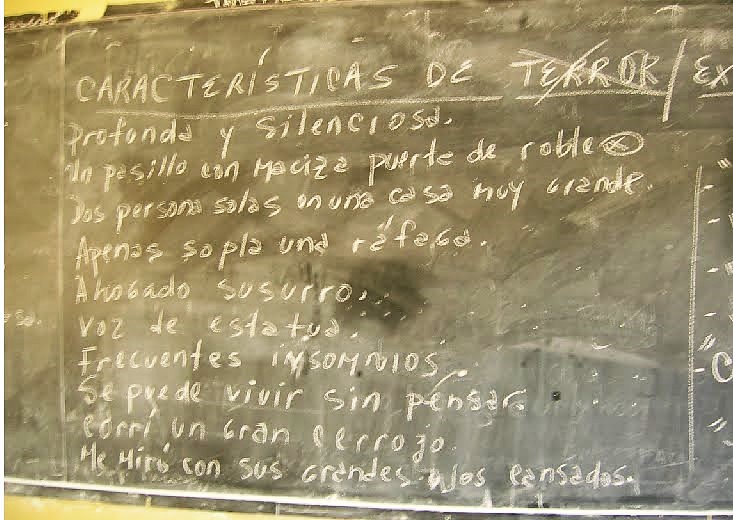 CARACTERÍSTICAS DE TERROR EX
profonda y silenciosa.
Un pasillo con maciza puerta de roble
Dos persona solas en una casa muy grande.
Apenas sopla una ráfaga.
Ahogado susurro.
Voz de estatua.
Frecuentes insomnios.
Se puede vivir sin pensar.
corrí un gran cerrojo.
Me miró con sus grandes ojos cansados.